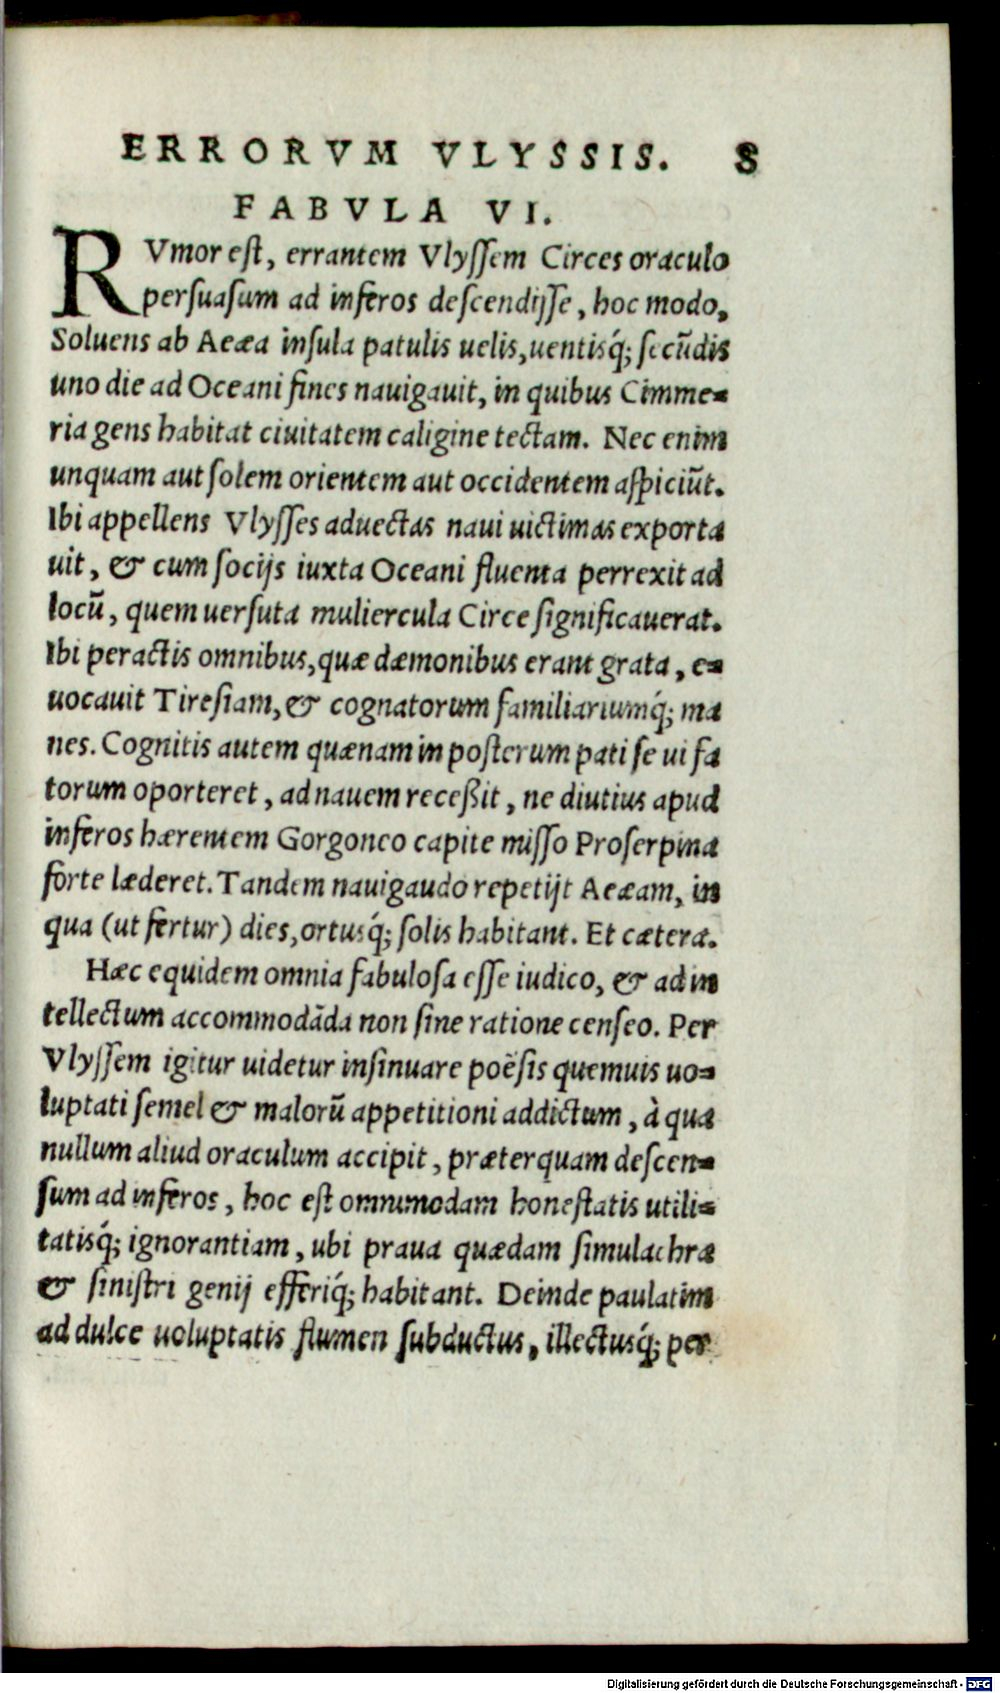 ERRORVM VLYSSIS. 8
FABVLA VI.
RVmor est, errantem Vlyssem Circes oraculo
persuasum ad inferos descendisse, hoc modo,
Soluens ab Aeæa insula patulis uelis, uentisq́; secūdis
uno die ad Oceani fines nauigauit, in quibus Cimme=
ria gens habitat ciuitatem caligine tectam. Nec enim
unquam aut solem orientem aut occidentem aspiciūt.
Ibi appellens Vlysses aduectas naui uictimas exporta
uit, & cum socijs iuxta Oceani fluenta perrexit ad
locū, quem uersuta muliercula Circe significauerat.
Ibi peractis omnibus, quæ dæmonibus erant grata, e=
uocauit Tiresiam, & cognatorum familiariumq́; ma
nes. Cognitis autem quænam in posterum pati se ui fa
torum oporteret, ad nauem receßit, ne diutius apud
inferos hærentem Gorgoneo capite misso Proserpina
forte læderet. Tandem nauigaudo repetijt Aeæam, in
qua (ut fertur) dies, ortusq́; solis habitant. Et cætera.
Hæc equidem omnia fabulosa esse iudico, & ad in
tellectum accommodāda non sine ratione censeo. Per
Vlyssem igitur uidetur insinuare poësis quemuis uo=
luptati semel & malorū appetitioni addictum, à qua
nullum aliud oraculum accipit, præterquam descen=
sum ad inferos, hoc est omnimodam honestatis utili=
tatisq́; ignorantiam, ubi praua quædam simulachra
& sinistri genij efferiq́; habitant. Deinde paulatim
ad dulce uoluptatis flumen subductus, illectusq́; per
Digitalisierung gefördert durch die Deutsche Forschungsgemeinschaft - DFG